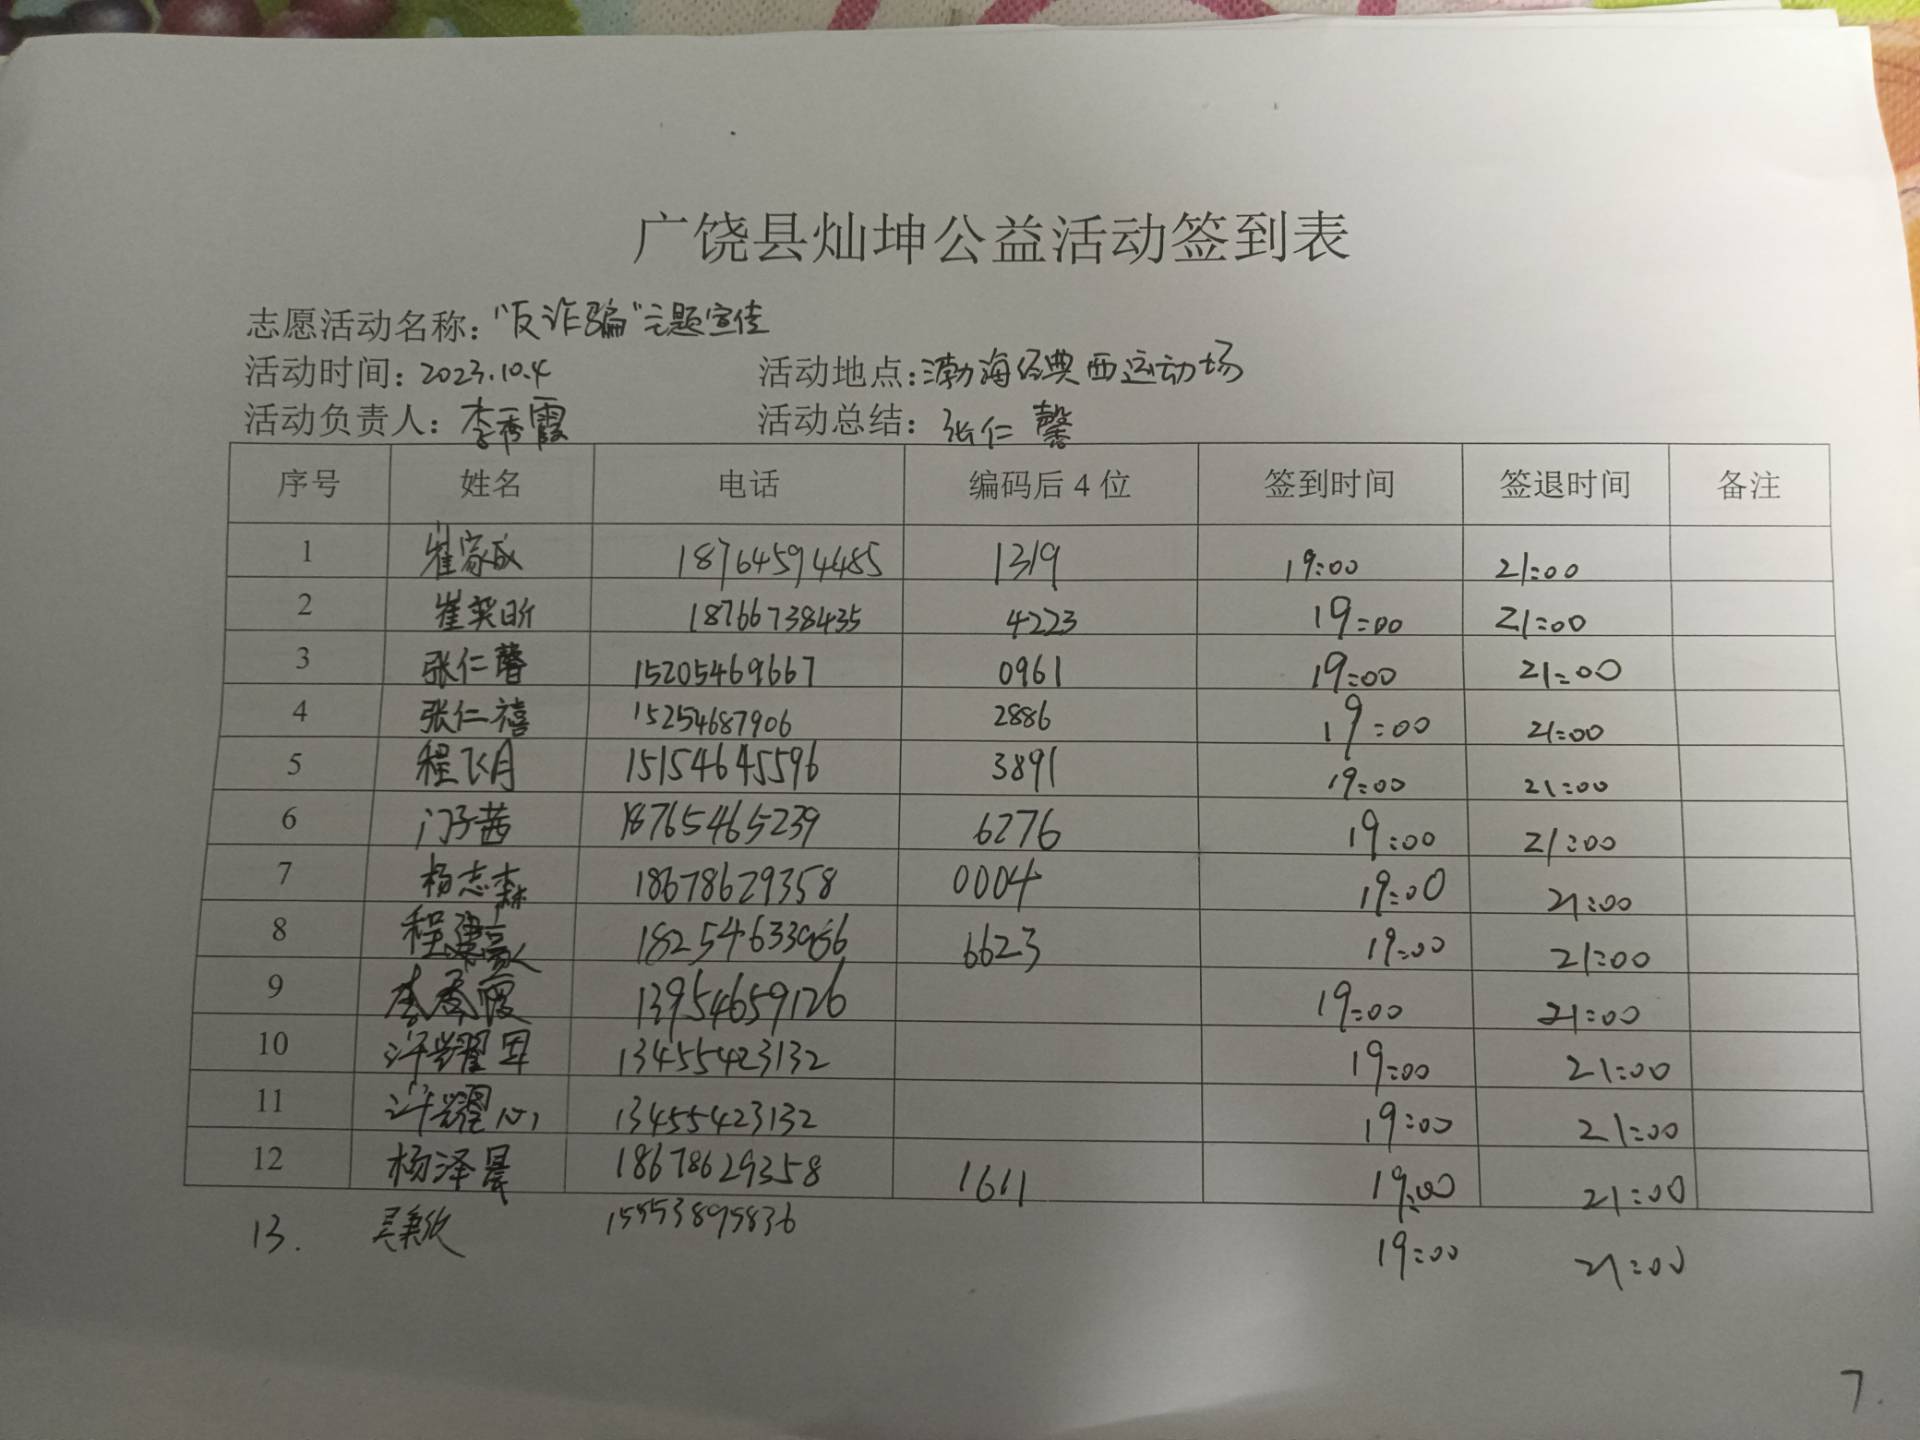 广饶县灿坤公益活动签到表
志愿活动名称：“反诈骗”主题宣传
活动时间：2023.10.4 活动地点：渤海经典西运动场
活动负责人：李秀霞 活动总结：张仁馨
序号 姓名 电话 编码后4位 签到时间 签退时间 备注
1 崔家成 18764594485 1319 19:00 21:00
2 崔奕昕 18766738435 4223 19:00 21:00
3 张仁馨 15205469667 0961 19:00 21:00
4 张仁禧 15254687906 2886 19:00 21:00
5 程飞月 15154645596 3891 19:00 21:00
6 门子茜 18765465239 6276 19:00 21:00
7 杨志森 18678629358 0004 19:00 21:00
8 程 6623 19:00 21:00
9 李秀霞 13954659126 19:00 21:00
10 许耀 13455423132 19:00 21:00
11 许耀心 13455423132 19:00 21:00
12 杨泽晨 18678629358 1611 19:00 21:00
13. 吴秉欣 15553895836 19:00 21:00
7.